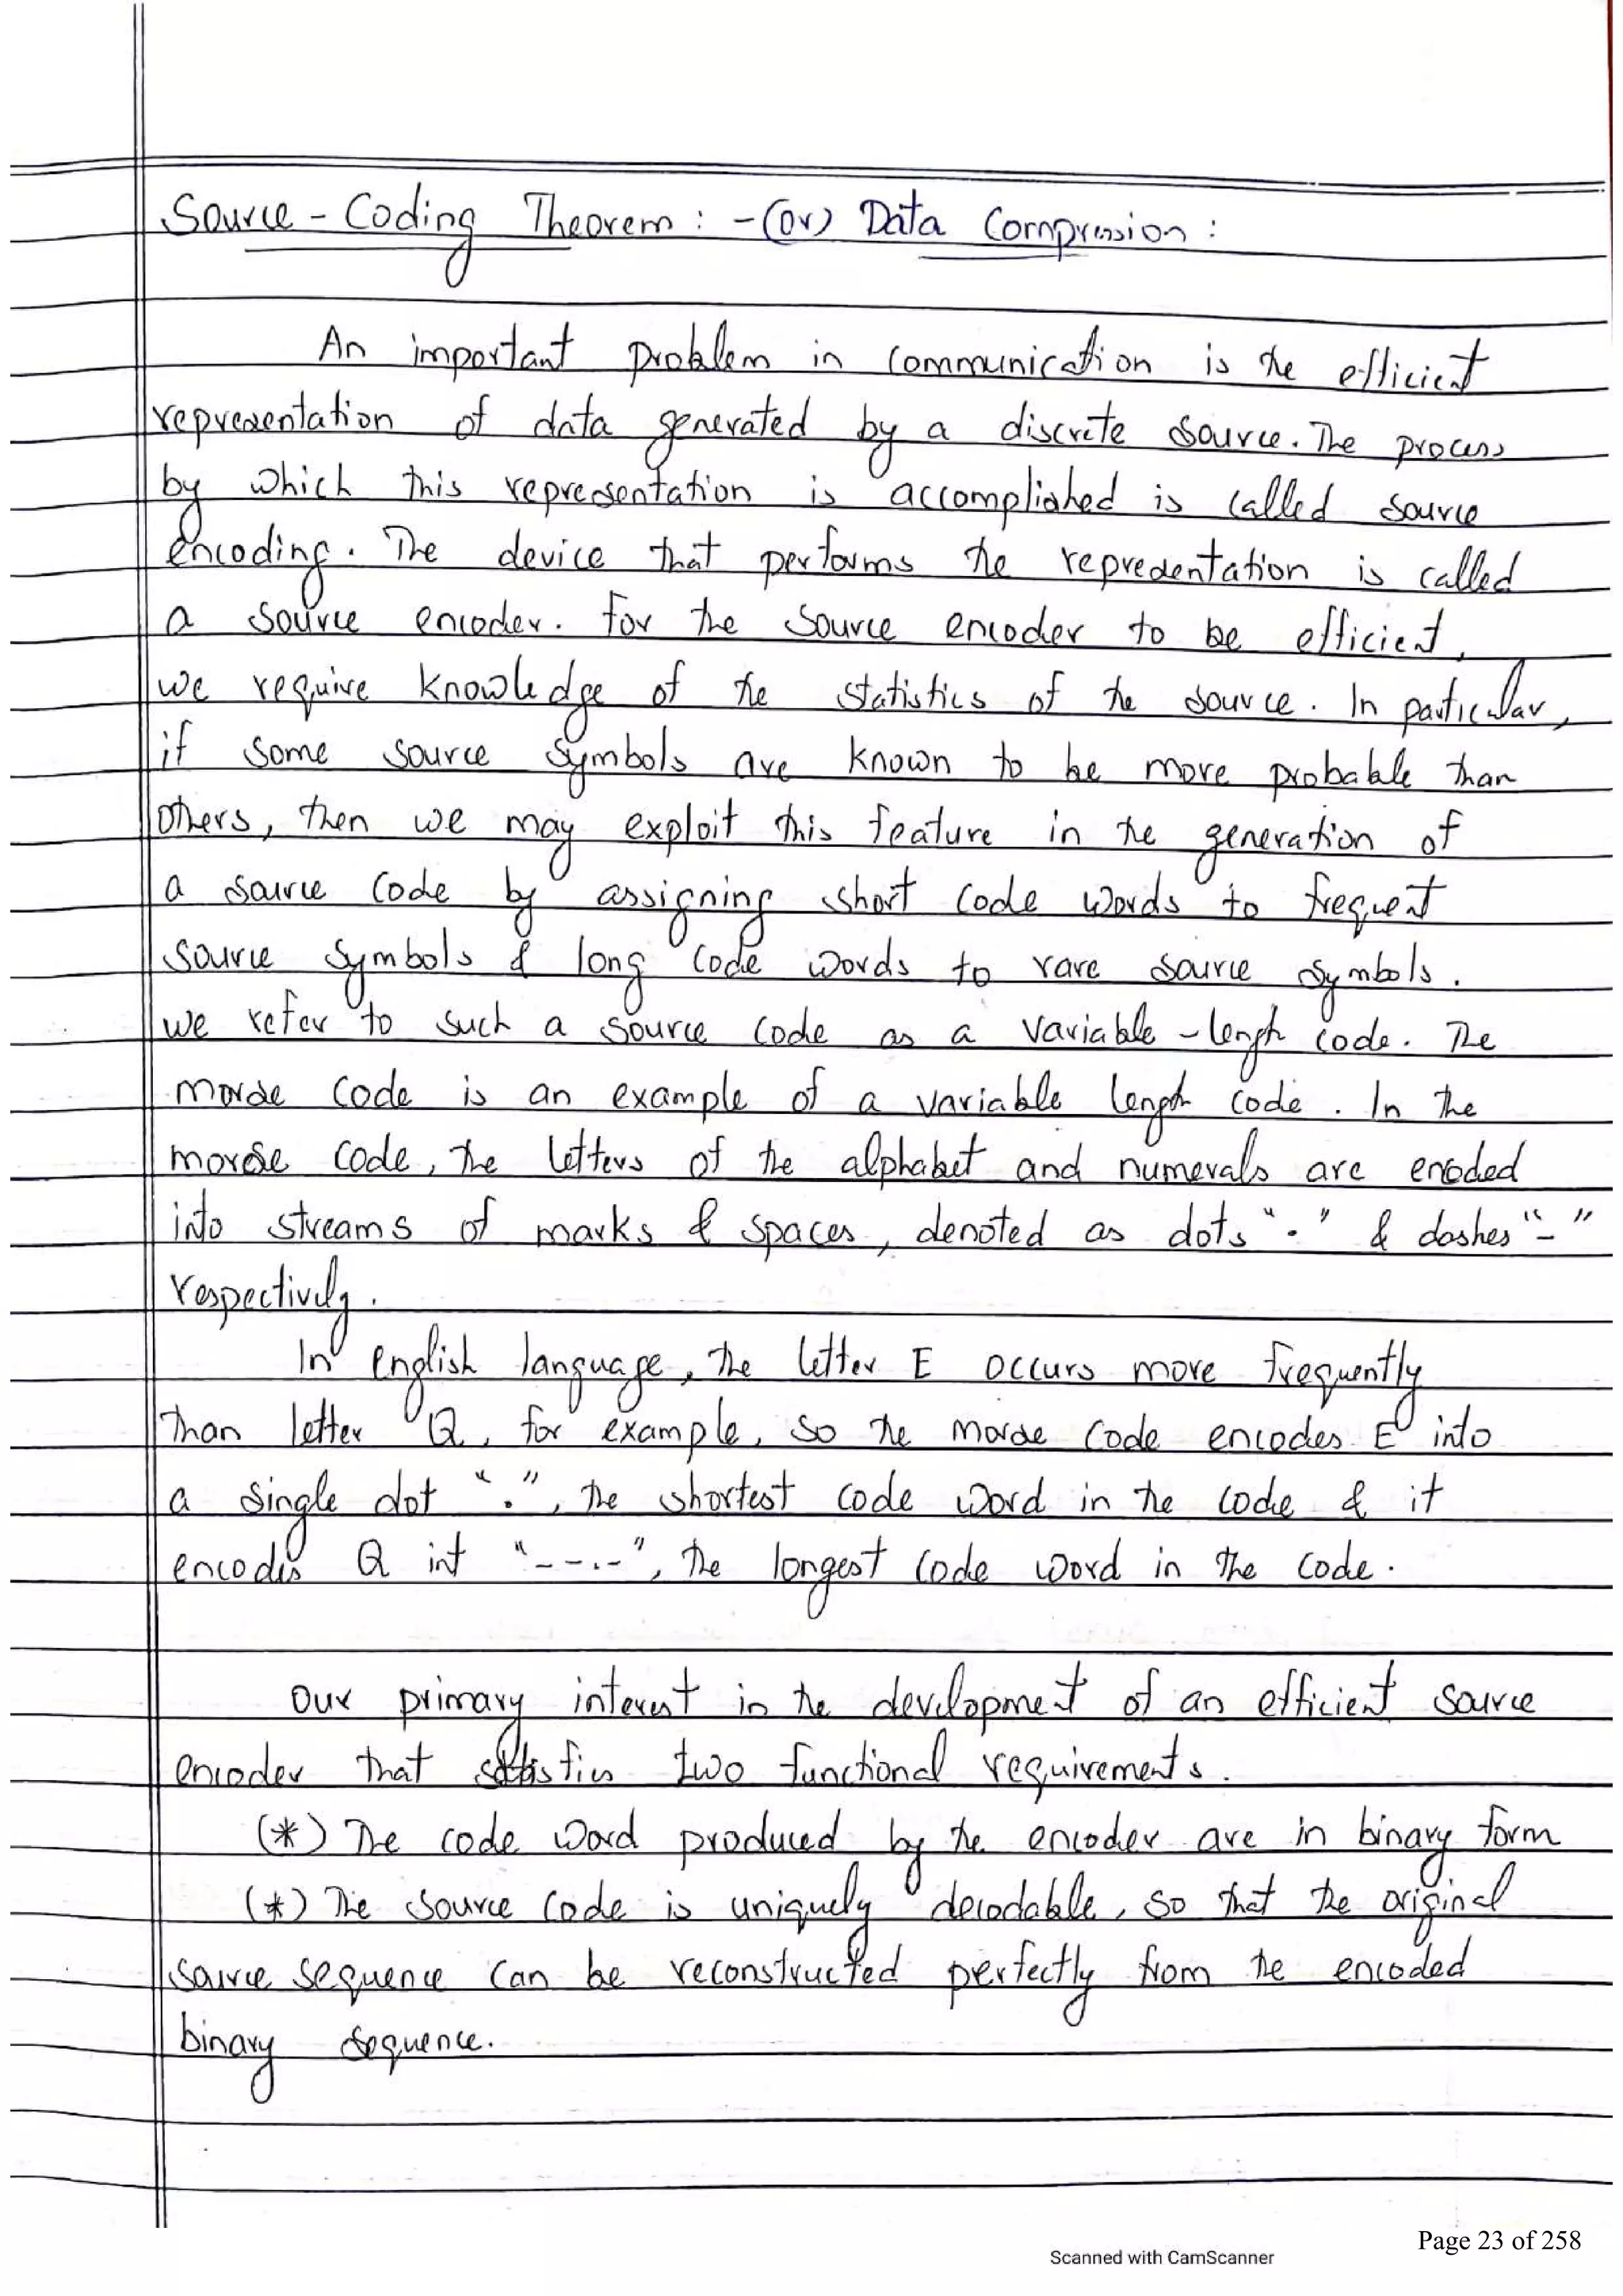 Source - Coding Theorem : - (or) Data Compression :
An important problem in communication is the efficient
representation of data generated by a discrete source. The process
by which this representation is accomplished is called source
encoding. The device that performs the representation is called
a source encoder. for the source encoder to be efficient,
we require knowledge of the statistics of the source. In particular,
if some source symbols are known to be more probable than
others, then we may exploit this feature in the generation of
a source code by assigning short code words to frequent
source symbols & long code words to rare source symbols.
we refer to such a source code as a variable - length code. The
morse code is an example of a variable length code. In the
morse code, the letters of the alphabet and numerals are encoded
into streams of marks & spaces, denoted as dots "." & dashes "-"
respectively.
In english language, the letter E occurs more frequently
than letter Q, for example, so the morse code encodes E into
a single dot ".", the shortest code word in the code & it
encodes Q int "--.-", the longest code word in the code.
Our primary interest in the development of an efficient source
encoder that satisfies two functional requirements.
(*) The code word produced by the encoder are in binary form
(*) The source code is uniquely decodable, so that the original
source sequence can be reconstructed perfectly from the encoded
binary sequence.
Page 23 of 258
Scanned with CamScanner